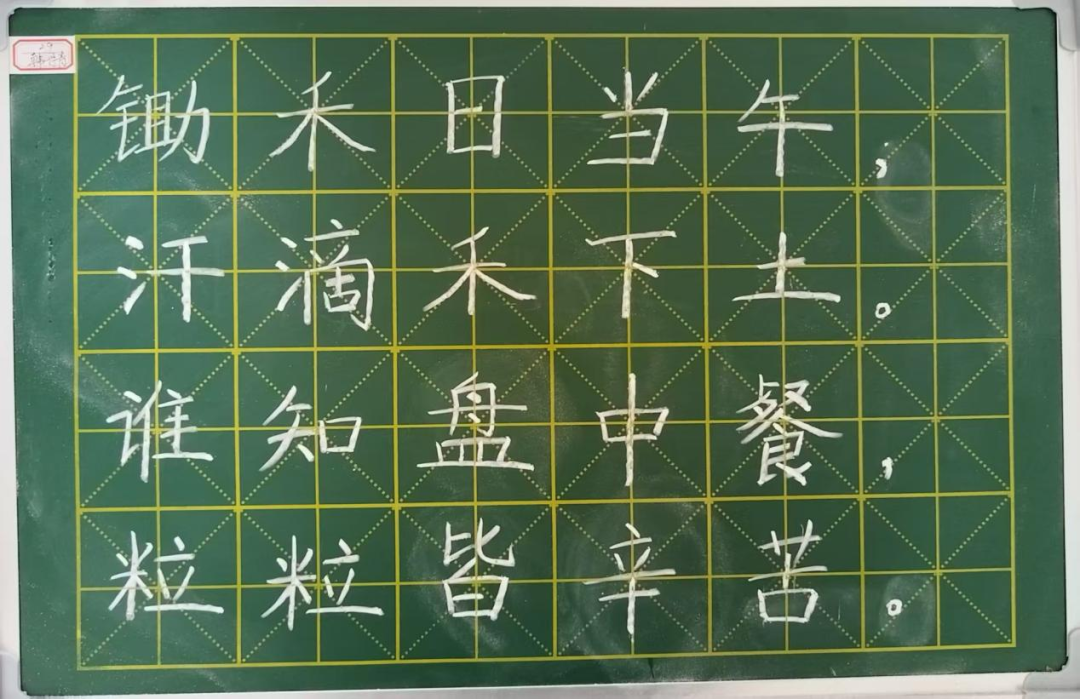 锄禾日当午，
汗滴禾下土。
谁知盘中餐，
粒粒皆辛苦。